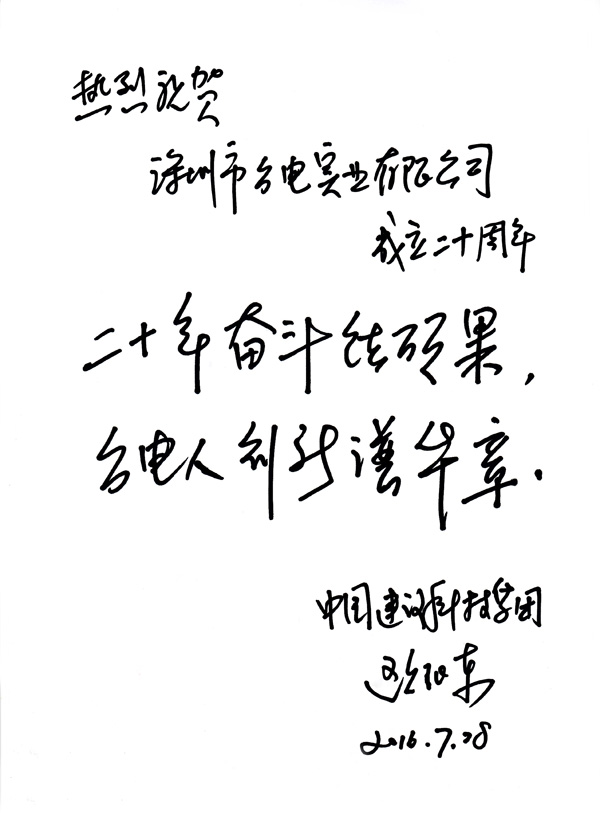 热烈祝贺
深圳市台电实业有限公司
成立二十周年
二十年奋斗结硕果，
台电人创新谱华章.
中国建设科技集团
欧阳东
2016.7.28